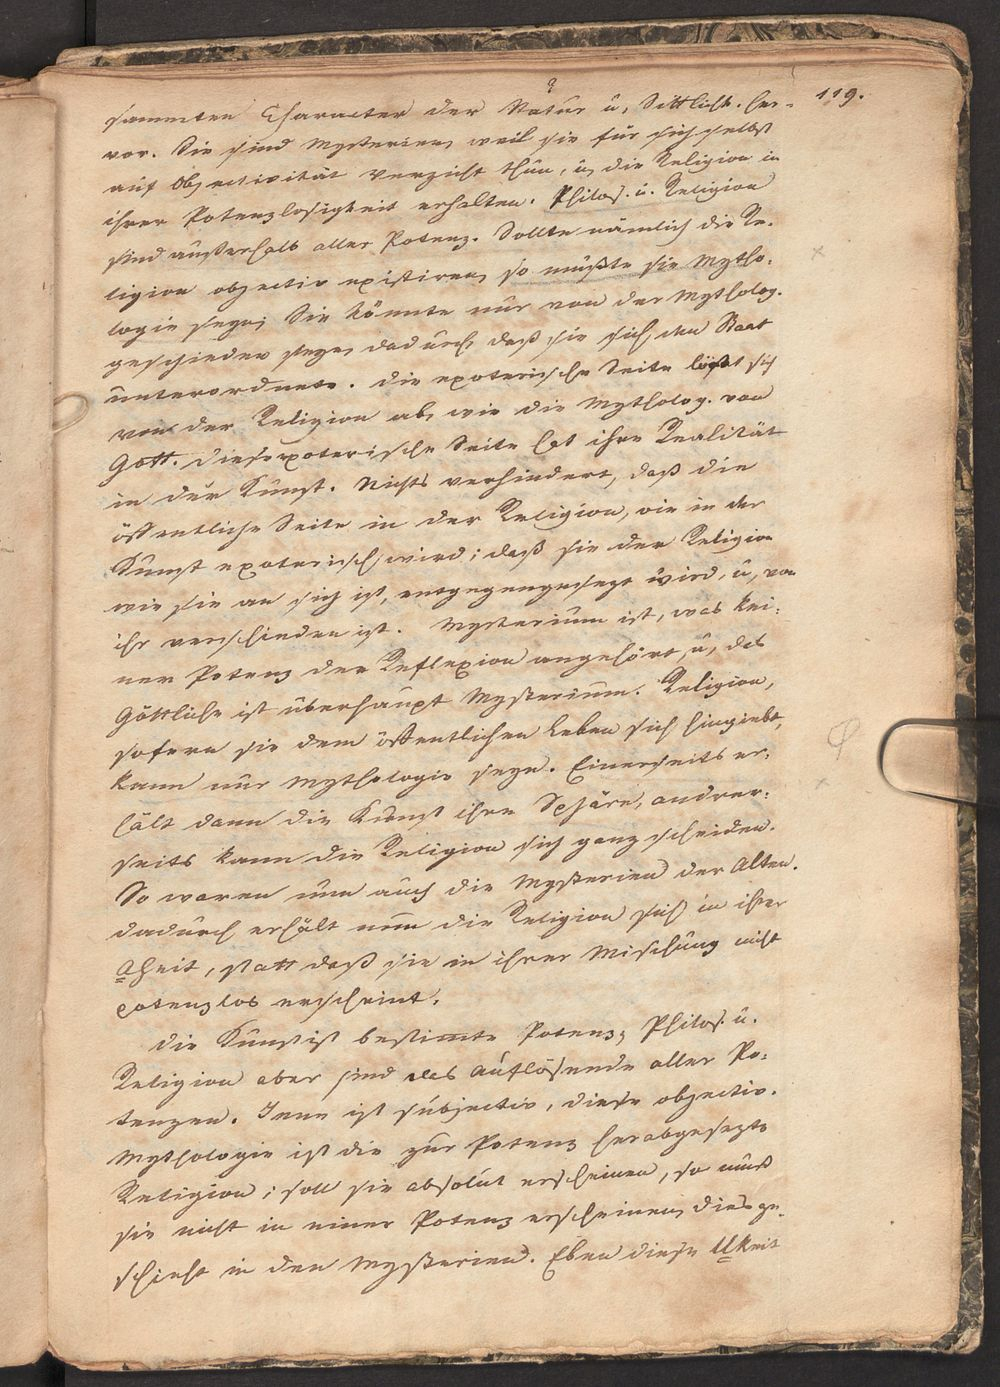 119.
sammten Character der Natur u. Sittlich. her-
vor. Sie sind Mysterien, weil sie für sich selbst
auf Objectivität Verzicht thun, u. die Religion in
ihrer Potenzlosigkeit erhalten. Philos. u. Religion
sind außerhalb aller Potenz. Sollte nämlich die Re-
ligion objectiv existiren, so müßte sie Mytho-
logie seyn; Sie könnte nur von der Mytholog.
geschieden seyn, dadurch daß sie sich dem Staat
unterordnete. Die exoterische Seite löst sich
von der Religion ab, wie die Mytholog. von
Gott. Diese exoterische Seite hat ihre Realität
in der Kunst. Nichts verhindert, daß die
öffentliche Seite in der Religion, wie in der
Kunst exoterisch wird; daß sie der Religion
wie sie an sich ist, entgegengesezt wird, u. von
ihr verschieden ist. Mysterium ist, was kei-
ner Potenz der Reflexion angehört, u. das
Göttliche ist überhaupt Mysterium. Religion,
sofern sie dem öffentlichen Leben sich hingiebt,
kann nur Mythologie seyn. Einerseits er-
hält dann die Kunst ihre Sphäre, andrer-
seits kann die Religion sich ganz scheiden.
So waren nun auch die Mysterien der Alten.
dadurch erhält nun die Religion sich in ihrer
Aheit, statt daß sie in ihrer Mischung nicht
potenzlos erscheint.
Die Kunst ist bestimte Potenz, Philos. u.
Religion aber sind das Auflösende aller Po-
tenzen. Jene ist subjectiv, diese objectiv.
Mythologie ist die zur Potenz herabgesezte
Religion; soll sie absolut erscheinen, so muß
sie nicht in einer Potenz erscheinen, dies ge-
schieht in den Mysterien. Eben diese Ukeit